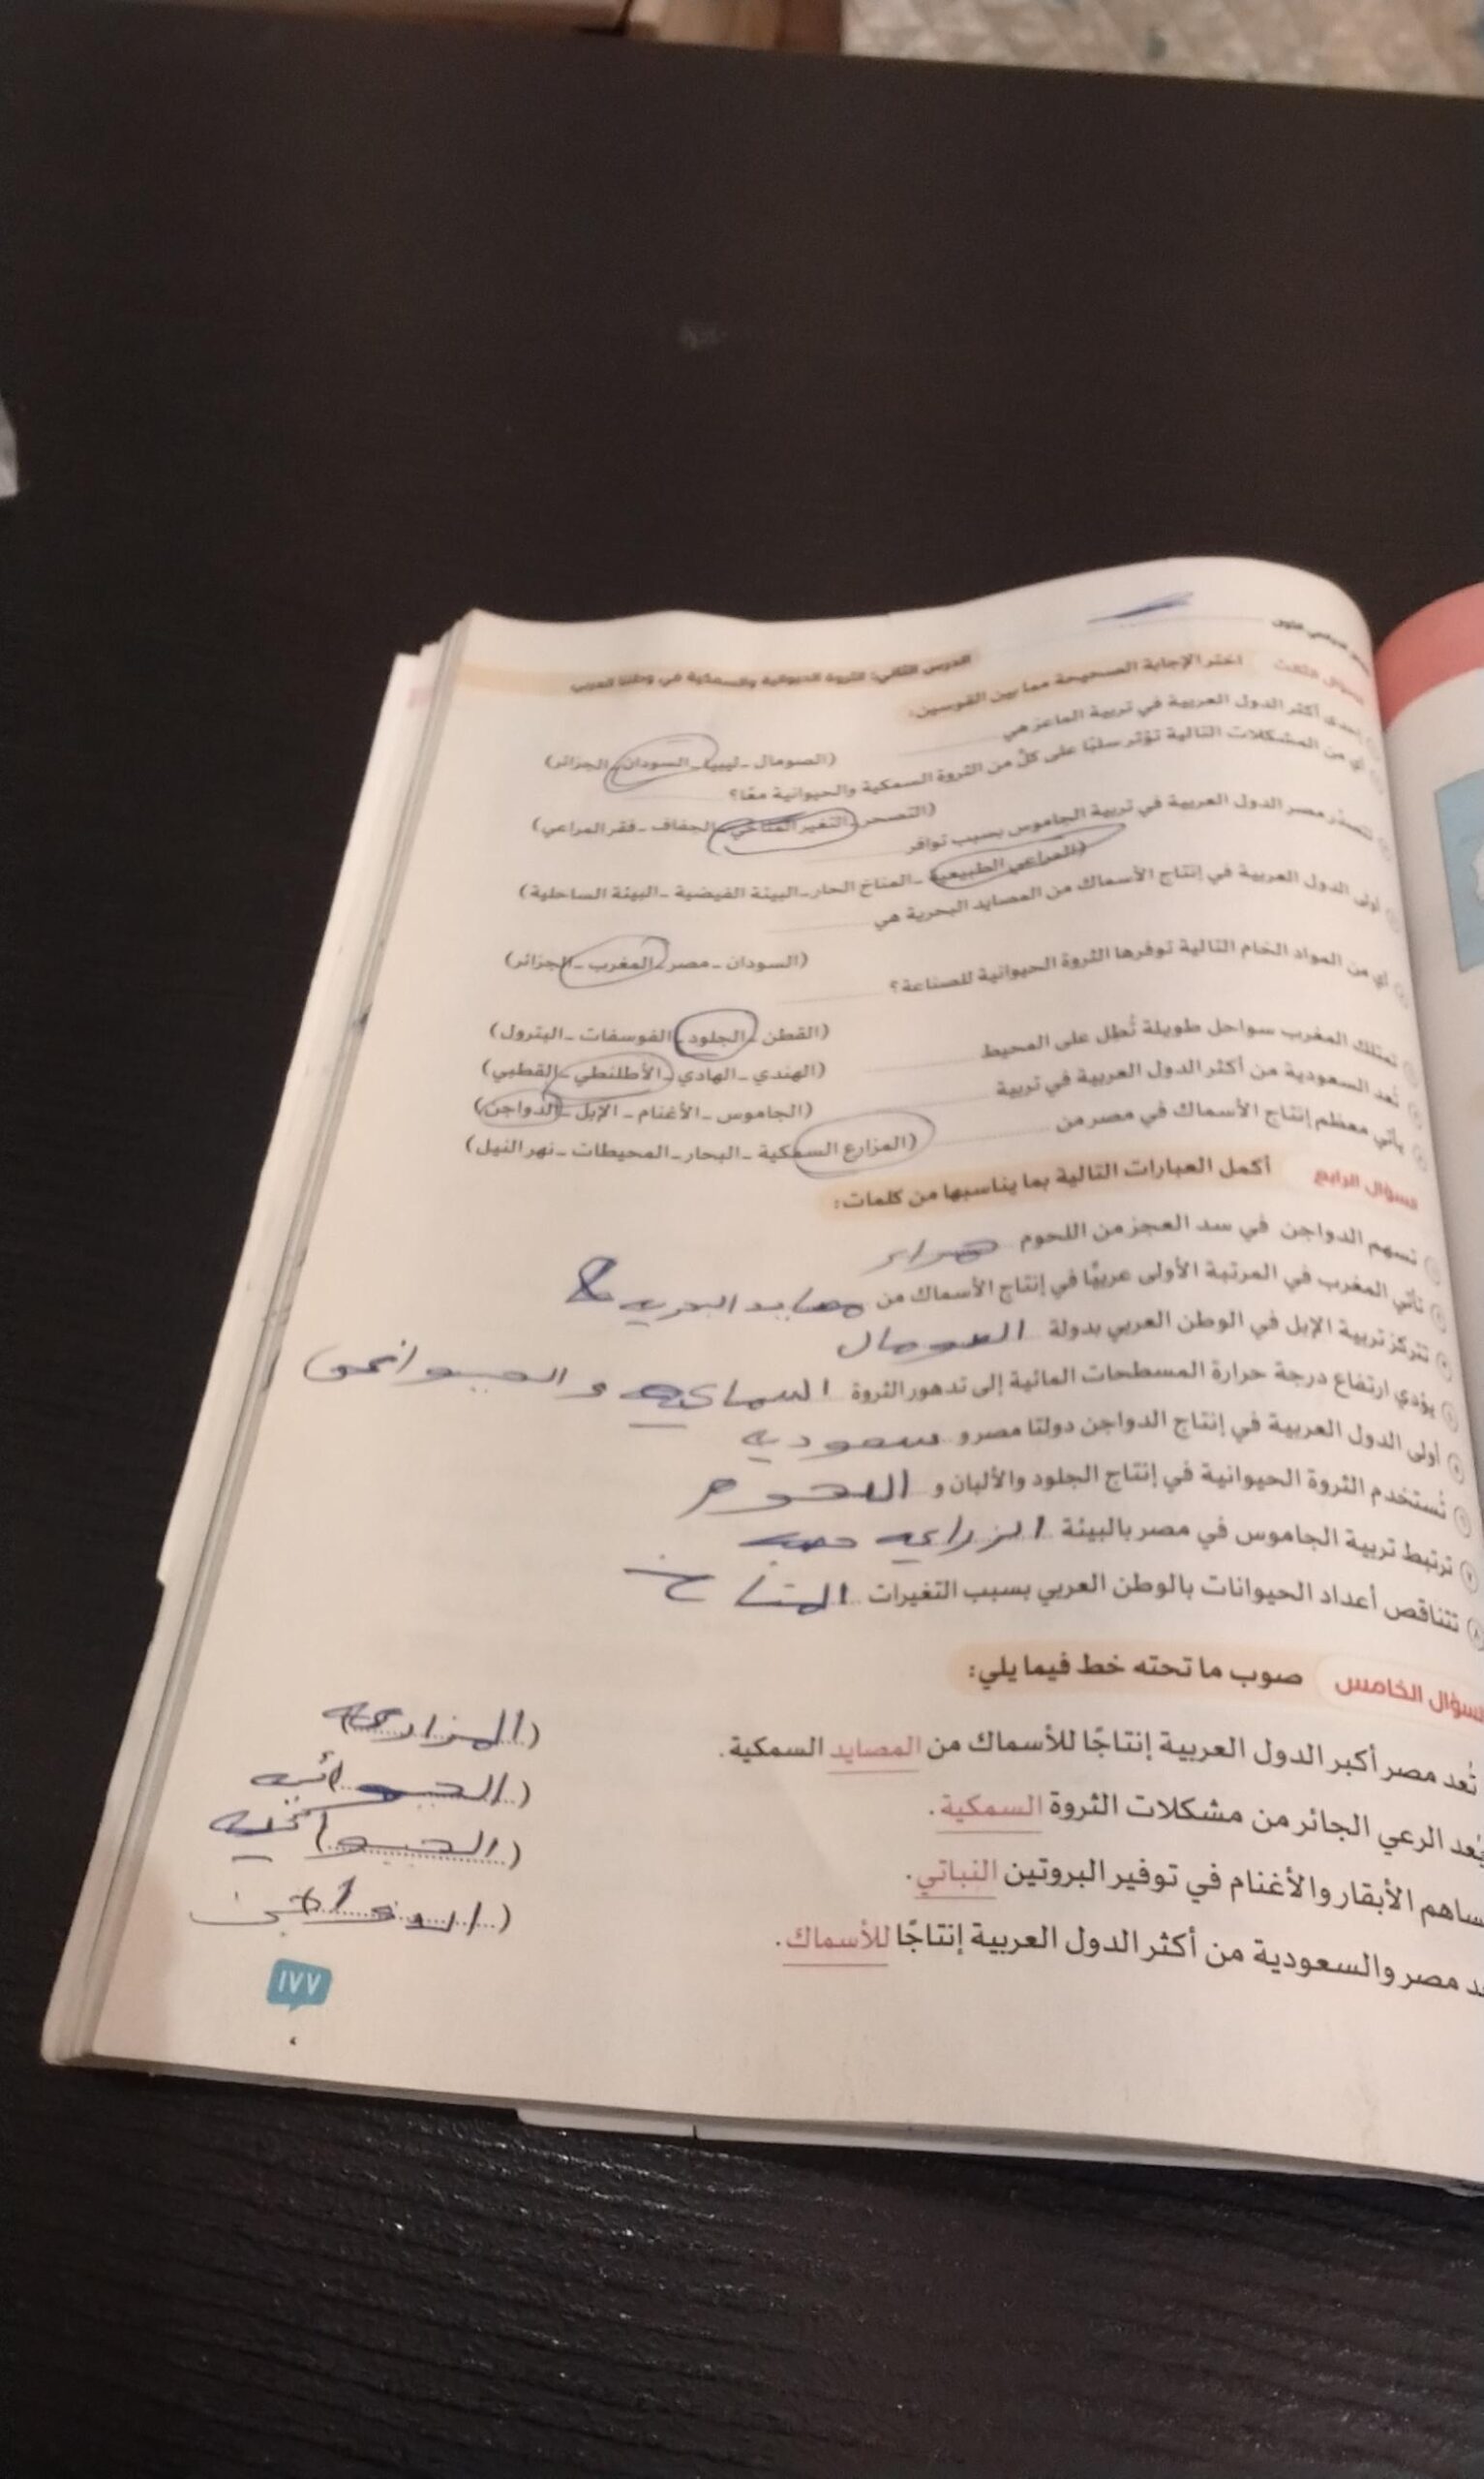 الدرس الثاني: الثروة الحيوانية والسمكية في وطننا العربي
السؤال الثالث اختر الإجابة الصحيحة مما بين القوسين:
إحدى أكثر الدول العربية في تربية الماعز هي
(الصومال - ليبيا - السودان - الجزائر)
أي من المشكلات التالية تؤثر سلبًا على كلٍّ من الثروة السمكية والحيوانية معًا؟
(التصحر - التغير المناخي - الجفاف - فقر المراعي)
تتصدر مصر الدول العربية في تربية الجاموس بسبب توافر
(المراعي الطبيعية - المناخ الحار - البيئة الفيضية - البيئة الساحلية)
أولى الدول العربية في إنتاج الأسماك من المصايد البحرية هي
(السودان - مصر - المغرب - الجزائر)
أي من المواد الخام التالية توفرها الثروة الحيوانية للصناعة؟
(القطن - الجلود - الفوسفات - البترول)
تمتلك المغرب سواحل طويلة تُطل على المحيط
(الهندي - الهادي - الأطلنطي - القطبي)
تُعد السعودية من أكثر الدول العربية في تربية
(الجاموس - الأغنام - الإبل - الدواجن)
يأتي معظم إنتاج الأسماك في مصر من
(المزارع السمكية - البحار - المحيطات - نهر النيل)
السؤال الرابع أكمل العبارات التالية بما يناسبها من كلمات:
تسهم الدواجن في سد العجز من اللحوم
تأتي المغرب في المرتبة الأولى عربيًّا في إنتاج الأسماك من مصايد البحريه
تتركز تربية الإبل في الوطن العربي بدولة الصومال
يؤدي ارتفاع درجة حرارة المسطحات المائية إلى تدهور الثروة
أولى الدول العربية في إنتاج الدواجن دولتا مصر و سعوديه
٦ تُستخدم الثروة الحيوانية في إنتاج الجلود والألبان و اللحوم
٧ ترتبط تربية الجاموس في مصر بالبيئة الزراعيه
٨ تتناقص أعداد الحيوانات بالوطن العربي بسبب التغيرات المناخ
السؤال الخامس صوب ما تحته خط فيما يلي:
تُعد مصر أكبر الدول العربية إنتاجًا للأسماك من المصايد السمكية. (المزارع)
يُعد الرعي الجائر من مشكلات الثروة السمكية.
ساهم الأبقار والأغنام في توفير البروتين النباتي.
د مصر والسعودية من أكثر الدول العربية إنتاجًا للأسماك. (الدواجن)
١٧٧